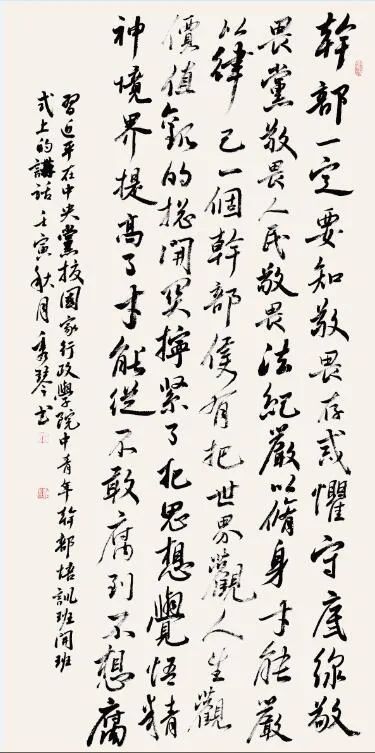 幹部一定要知敬畏存戒懼守底線敬
畏黨敬畏人民敬畏法紀嚴以脩身才能嚴
以律己一個幹部隻有把世界觀人生觀
價值觀的總開關擰緊了把思想覺悟精
神境界提高了才能從不敢腐到不想腐
習近平在中央黨校國家行政學院中青年幹部培訓班開班
式上的講話壬寅秋月秀琴書